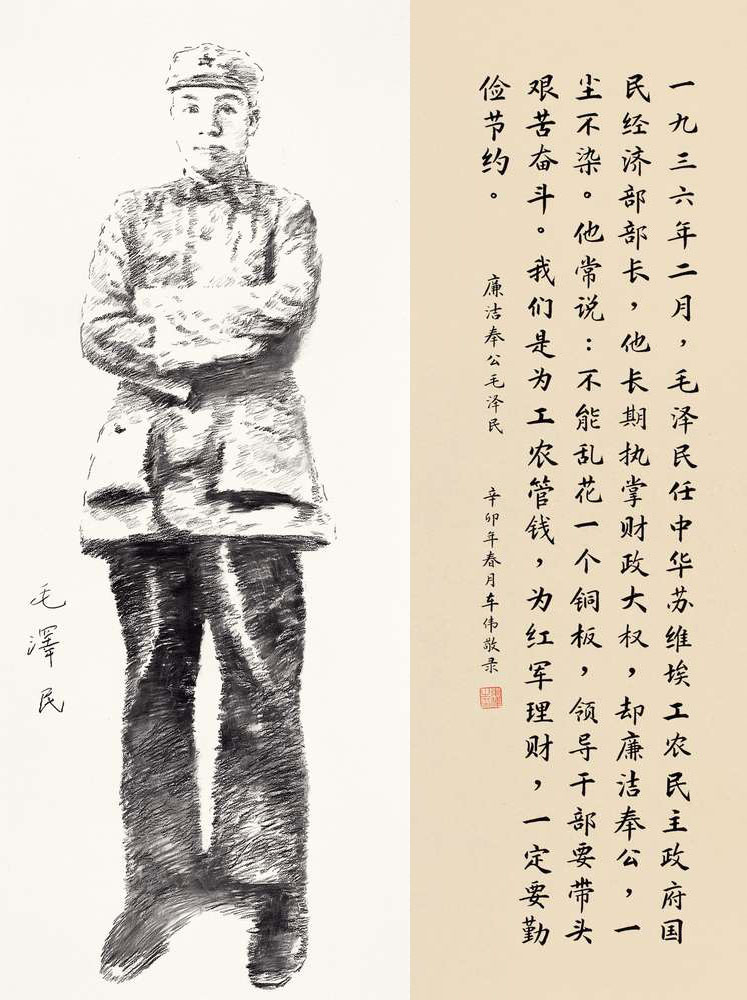 一九三六年二月，毛泽民任中华苏维埃工农民主政府国
民经济部部长，他长期执掌财政大权，却廉洁奉公，一
尘不染。他常说：不能乱花一个铜板，领导干部要带头
艰苦奋斗。我们是为工农管钱，为红军理财，一定要勤
俭节约。
廉洁奉公毛泽民 辛卯年春月车伟敬录
毛澤民